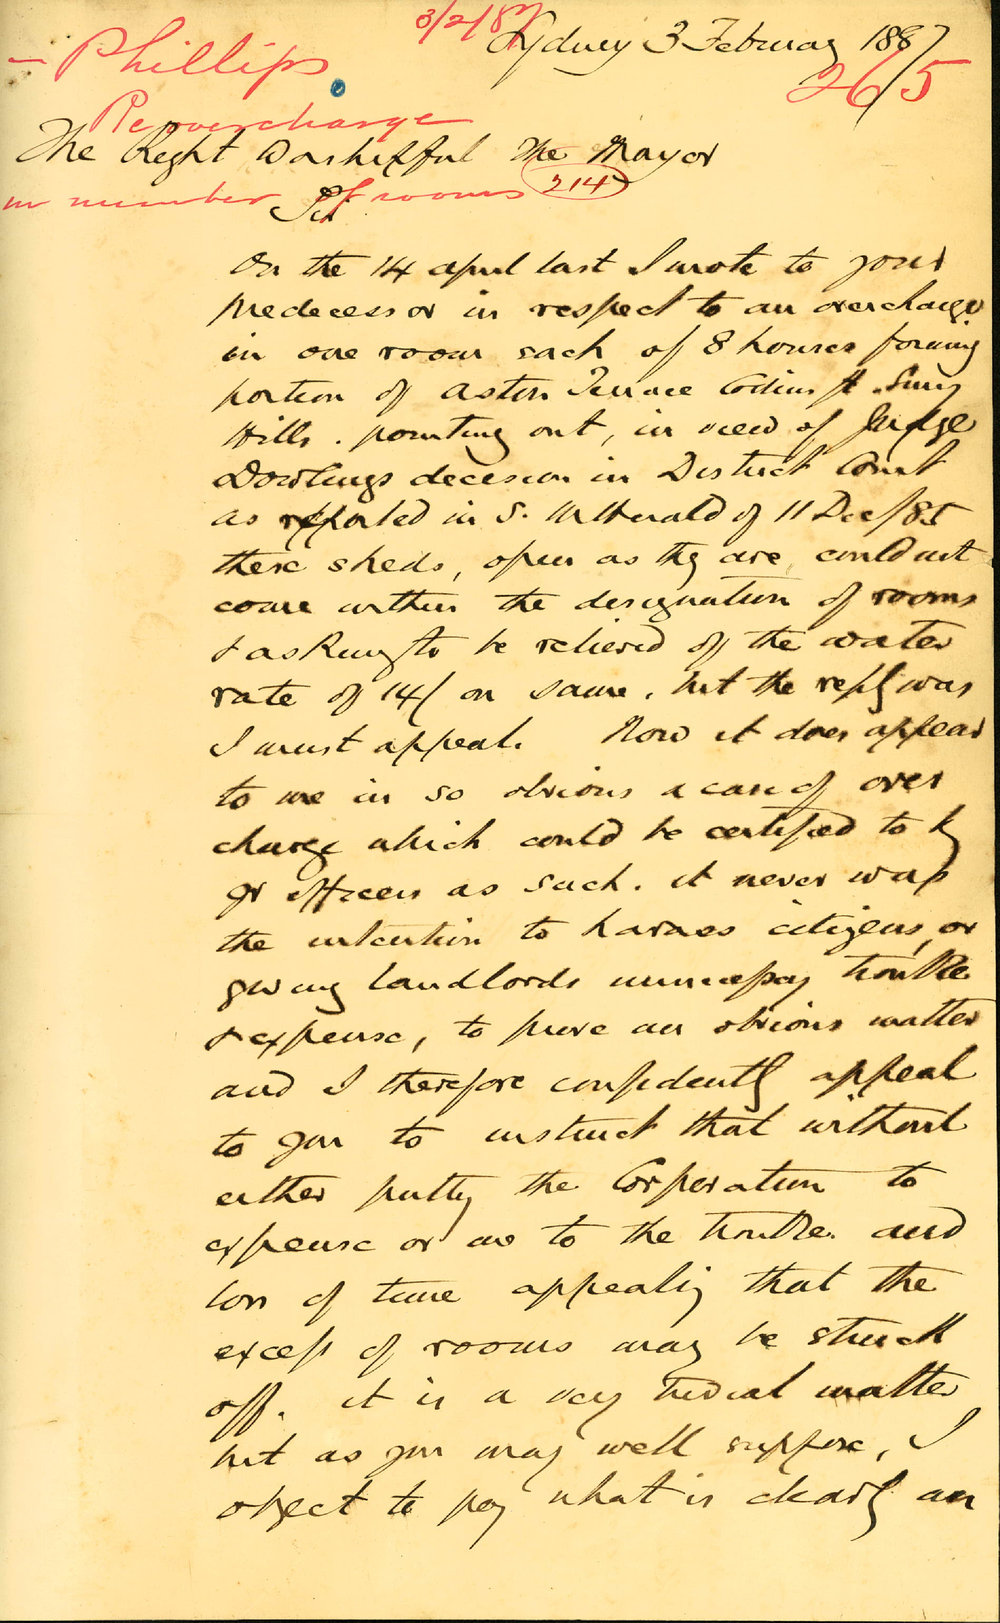 3/2/87
Sydney 3 February 1887
– Phillips
26/5
Re overcharge
The Right Worshipful The Mayor
in number of rooms 214
Sir
On the 14 april last I wrote to your
predecessor in respect to an overcharge
in one room each of 8 houses forming
portion of Aston Terrace Collins St. Surry
Hills. pointing out, in view of Judge
Dowlings decision in District Court
as reported in S. M Herald of 11 Dec/85
these sheds, open as they are, could not
come within the designation of rooms
& asking to be relieved of the water
rate of 14/ on same. but the reply was
I must appeal. Now it does appear
to me in so obvious a case of over
charge which could be certified to by
yr officers as such. it never was
the intention to harass citizens, or
giving landlords unnecessary trouble
& expense, to prove an obvious matter
and I therefore confidently appeal
to you to instruct that without
either putting the Corporation to
expense or me to the trouble. and
loss of time appealing that the
excess of rooms may be struck
off. it is a very trivial matter
but as you may well suppose, I
object to pay what is clearly an